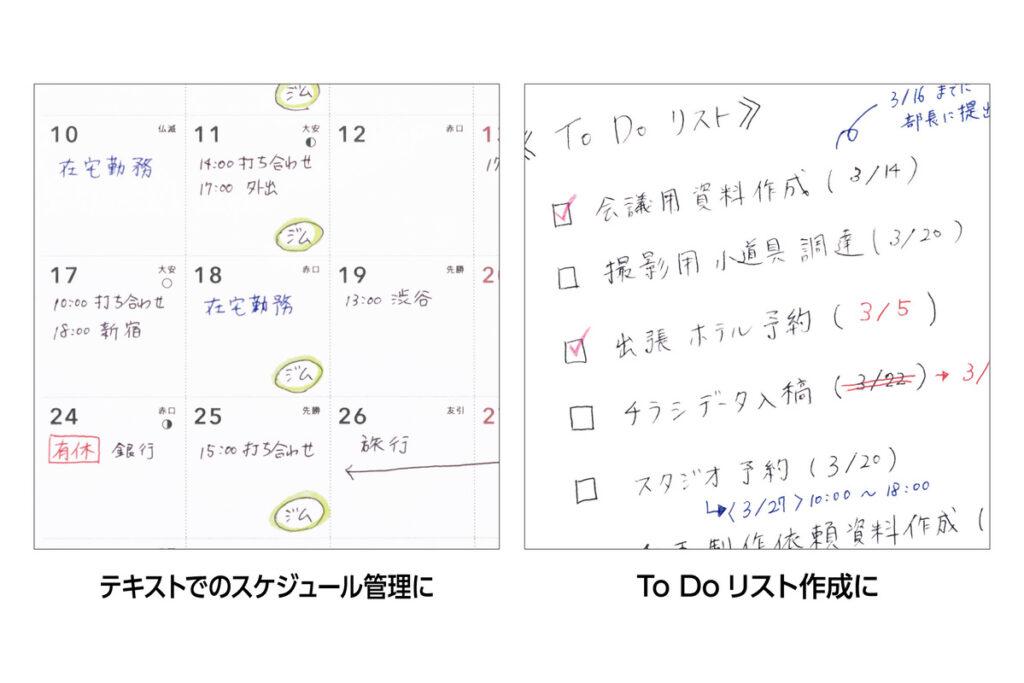 ジム
10 仏滅
在宅勤務
11 大安
14:00 打ち合わせ
17:00 外出
ジム
12 赤口
17 大安
10:00 打ち合わせ
18:00 新宿
18 赤口
在宅勤務
ジム
19 先勝
13:00 渋谷
24 赤口
有休 銀行
25 先勝
15:00 打ち合わせ
ジム
26 友引
旅行
テキストでのスケジュール管理に
《 To Do リスト》
3/16 までに
部長に提出
会議用資料作成 (3/14)
撮影用 小道具 調達 (3/20)
出張 ホテル 予約 (3/5)
チラシデータ入稿 (3/22) → 3/
スタジオ 予約 (3/20)
↳〈3/27〉10:00 ~ 18:00
制作依頼資料作成 (
To Do リスト作成に